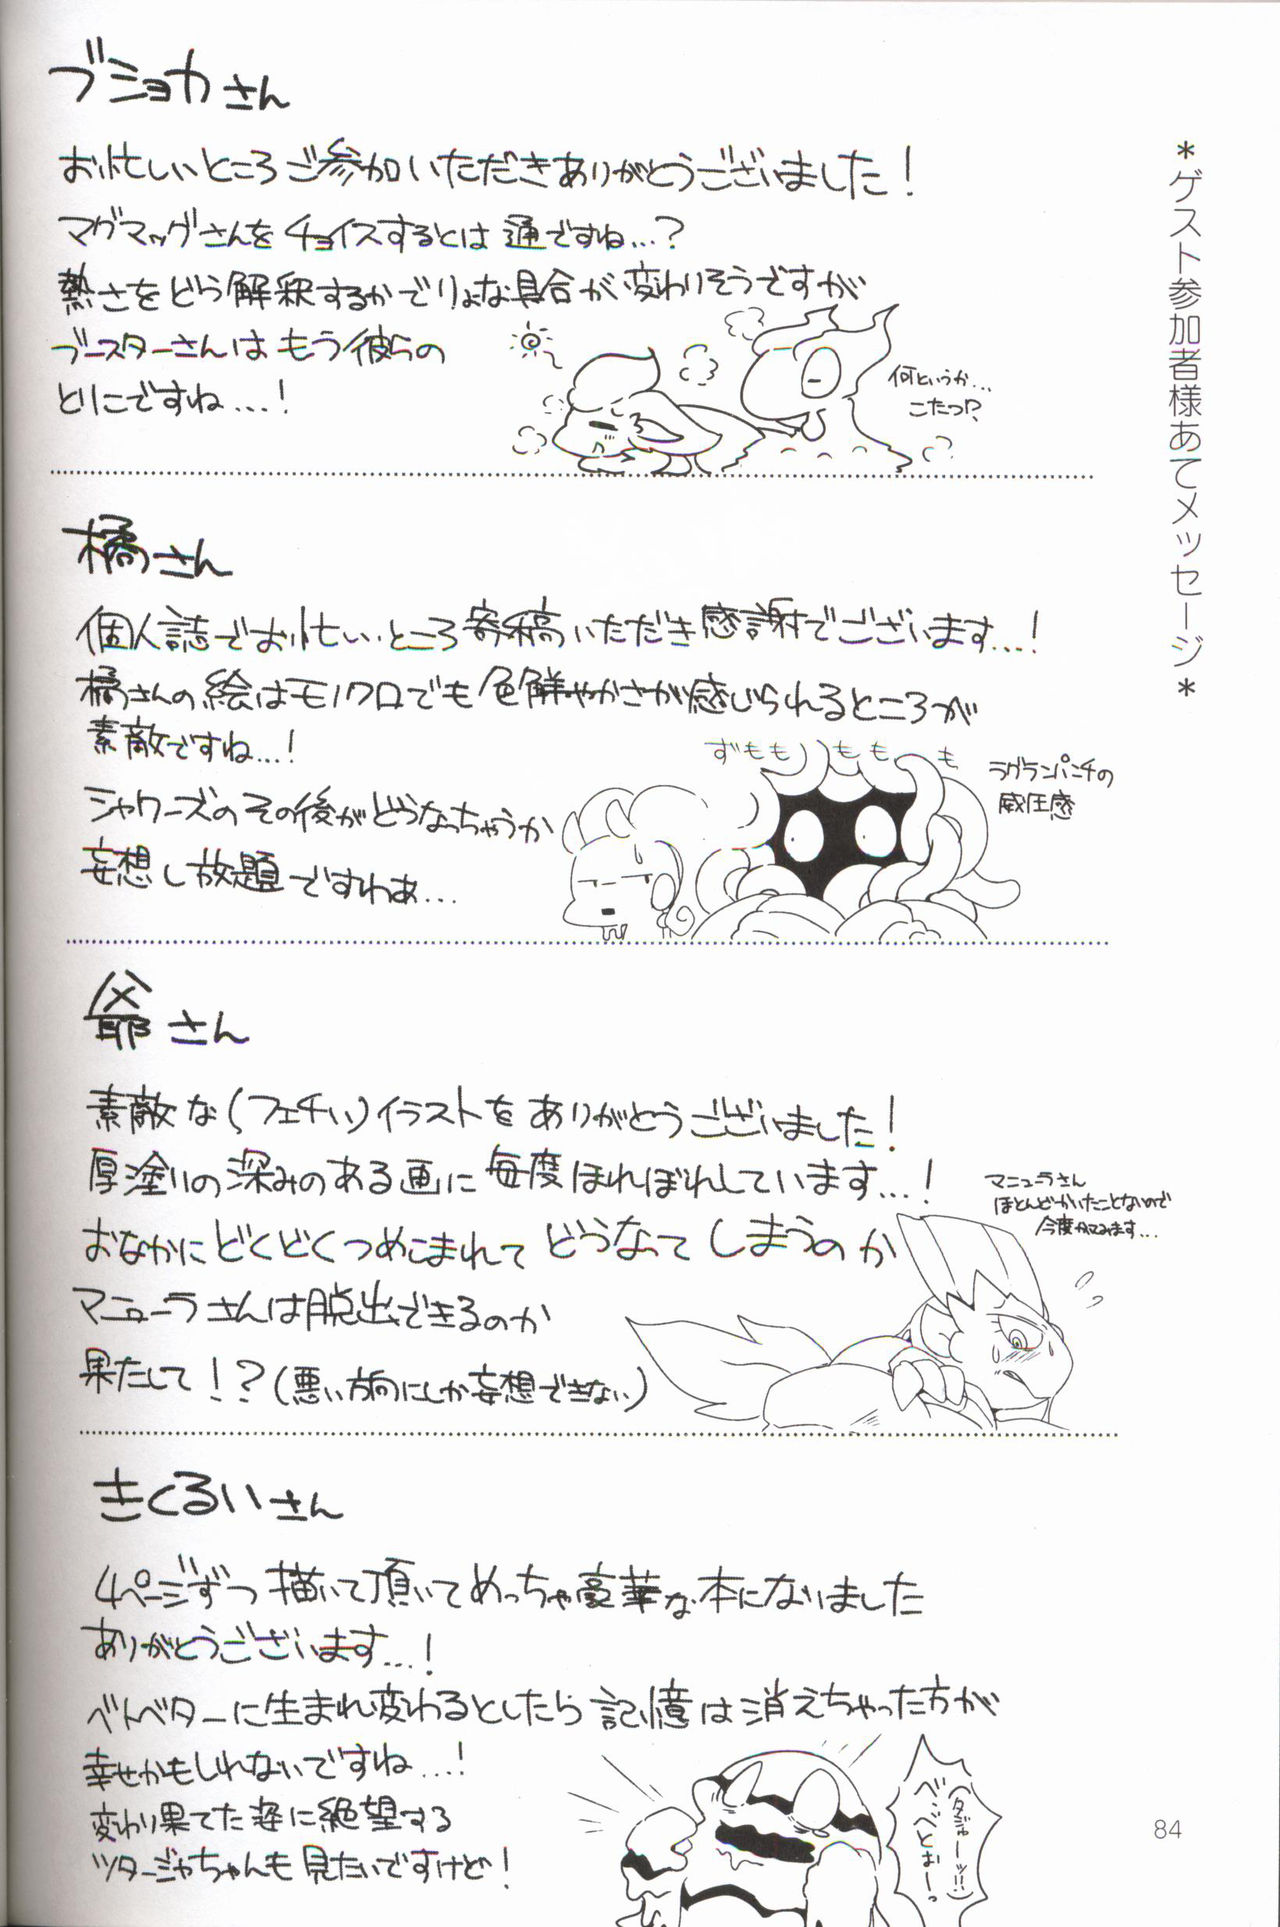 *ゲスト参加者様あてメッセージ*
ブショカさん
お忙しいところご参加いただきありがとうございました!
マグマッグさんをチョイスするとは通ですね…?
熱さをどう解釈するかでりょな具合が変わりそうですが
ブースターさんはもう彼らの
とりこですね…!
何というか…
こたつ!?
橘さん
個人誌でお忙しいところ寄稿いただき感謝でございます…!
橘さんの絵はモノクロでも色鮮やかさが感じられるところが
素敵ですね…!
シャワーズのその後がどうなっちゃうか
妄想し放題ですわあ…
ずももももも
ラグランパンチの
威圧感
爺さん
素敵な(フェチい)イラストをありがとうございました!
厚塗りの深みのある画に毎度ほれぼれしています…!
おなかにどくどくつめこまれてどうなってしまうのか
マニューラさんは脱出できるのか
果たして!?(悪い方向にしか妄想できない)
マニューラさん
ほとんどかいたことないので
今度かいてみます…
きくるいさん
4ページずつ描いて頂いてめっちゃ豪華な本になりました
ありがとうございます…!
ベトベターに生まれ変わるとしたら記憶は消えちゃった方が
幸せかもしれないですね…!
変わり果てた姿に絶望する
ツタージャちゃんも見たいですけど!
84